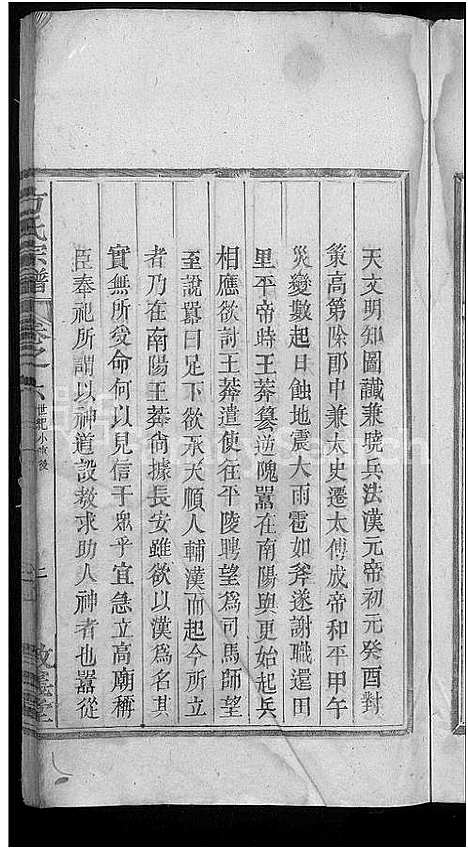 天文明知圖讖兼曉兵法漢元帝初元癸酉對
策高第除郎中兼太史遷太傅成帝和平甲午
災變數起日蝕地震大雨雹如斧遂謝職還田
里平帝時王莽篡逆隗囂在南陽與更始起兵
相應欲討王莽遣使徃平陵聘望爲司馬師望
至說囂曰足下欲承天順人輔漢而起今所立
者乃在南陽王莽尚據長安雖欲以漢爲名其
實無所受命何以見信于衆乎宜急立高廟稱
臣奉祀所謂以神道設教求助人神者也囂從
方氏宗譜
卷之六
世紀小宗後